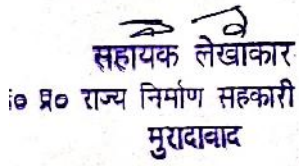 सहायक लेखाकार
प्र० राज्य निर्माण सहकारी
मुरादाबाद